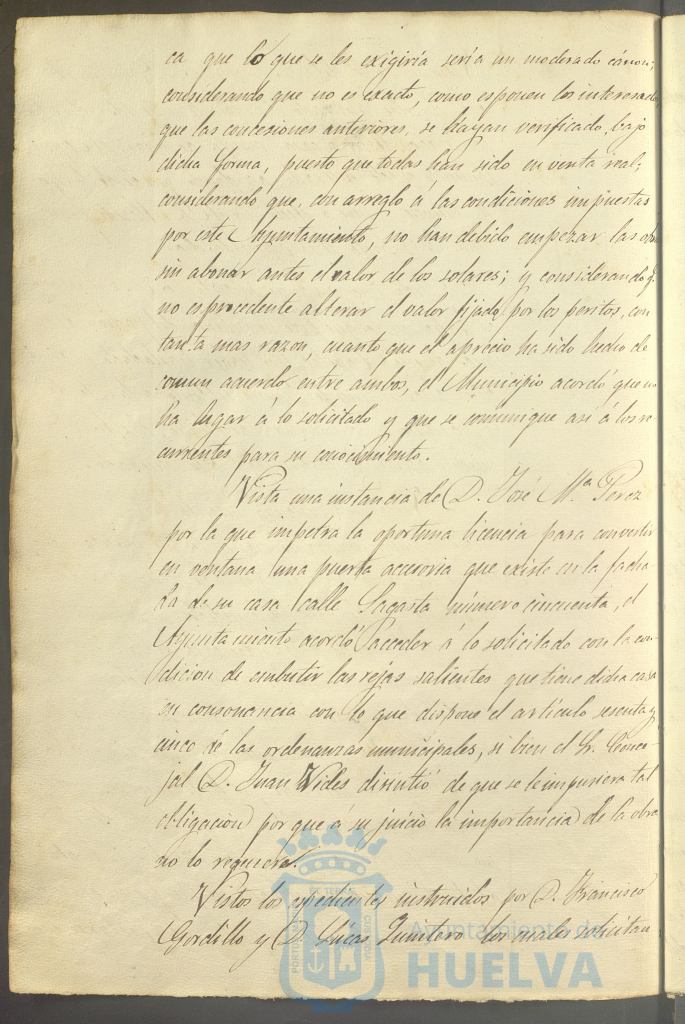 ca que lo que se les exigiria seria un moderado cánon;
considerando que no es exacto, como esponen los interesado
que las concesiones anteriores, se hayan verificado, bajo
dicha forma, puesto que todas han sido en venta real;
considerando que, con arreglo á las condiciones impuestas
por este Ayuntamiento, no han debido empezar las ob
sin abonar antes el valor de los solares; y considerando q.
no es procedente alterar el valor fijado por los peritos, con
tanta mas razon, cuanto que el aprecio ha sido hecho de
comun acuerdo entre ambos, el Municipio acordó que no
ha lugar á lo solicitado y que se comunique asi á los re-
currentes para su conocimiento.
Vista una instancia de D. José Mª Perez
por la que impetra la oportuna licencia para convertir
en ventana una puerta accesoria que existe en la facha
da de su casa calle Sagasta número cincuenta, el
Ayuntamiento acordó acceder á lo solicitado con la con-
dicion de embutir las rejas salientes que tiene dicha casa
en consonancia con lo que dispone el artículo sesenta y
cinco de las ordenanzas municipales, si bien el Sr. Conce-
jal D. Juan Vides disintió de que se le impusiera tal
obligacion por que á su juicio la importancia de la obra
no lo requiere.
Vistos los expedientes instruidos por D. Francisco
Gordillo y D. Lúcas Quintero los cuales solicitan
Ayuntamiento de
HUELVA